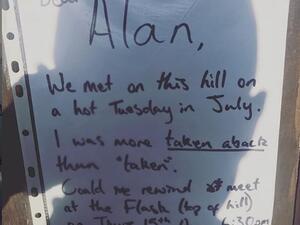 Dear
Alan,
We met on this hill on
a hot Tuesday in July.
I was more taken aback
than "taken".
Could we rewind & meet
at the Flask (top of hill)
on Thurs 15th
6:30pm